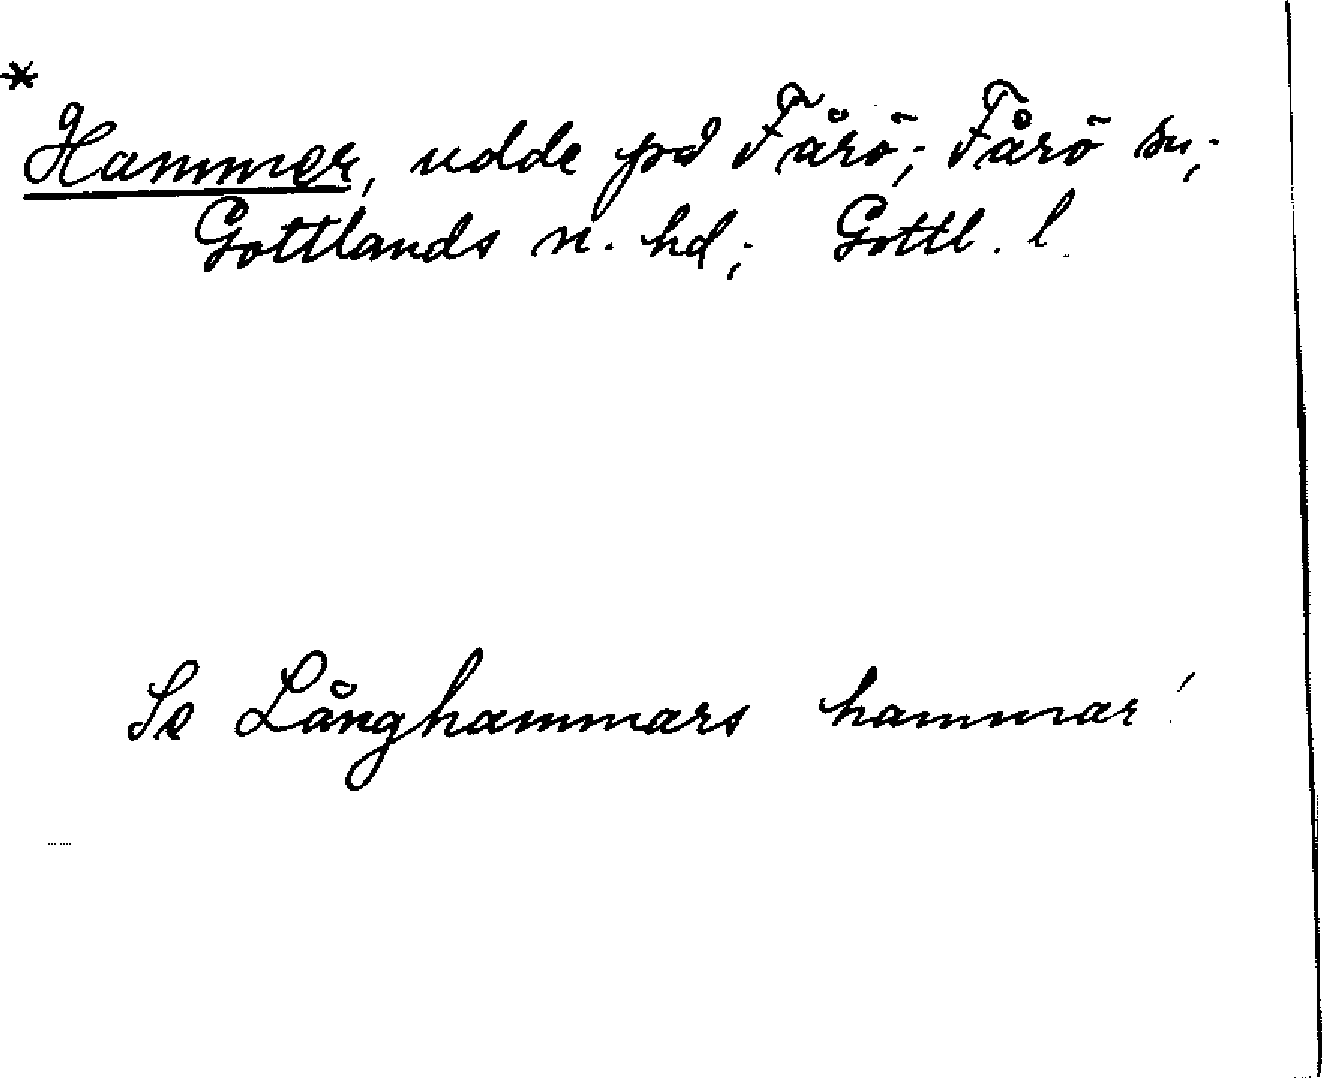 *
Hammer, udde på Fårö; Fårö sn;
Gottlands n. hd; Gottl. l.
Se Långhammars hammar!